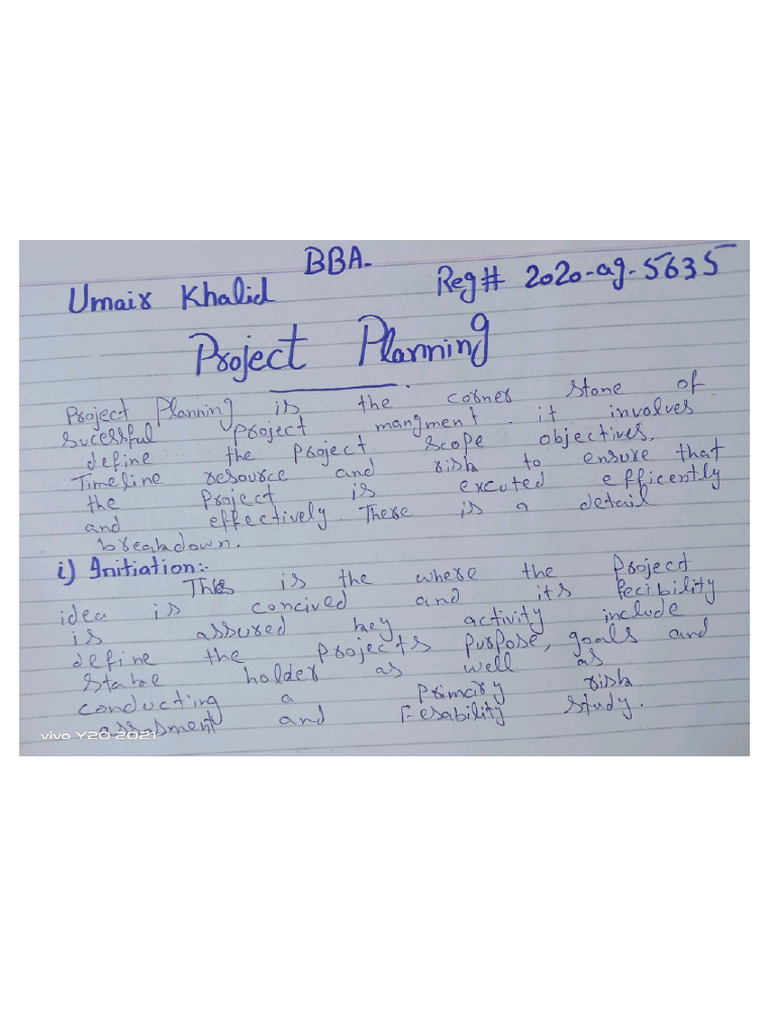 BBA.
Umair Khalid Reg# 2020-ag-5635
Project Planning
Project Planning is the corner stone of
sucessful project mangment. it involves
define the project scope objectives,
Timeline resource and risk to ensure that
the project is excuted efficently
and effectively. There is a detail
breakdown.
i) Initiation:-
This is the where the project
idea is concived and its fecibility
is assured key activity include
define the projects purpose, goals and
stake holder as well as
conducting a primary risk
assesment and Fesability study.
vivo Y20 2021